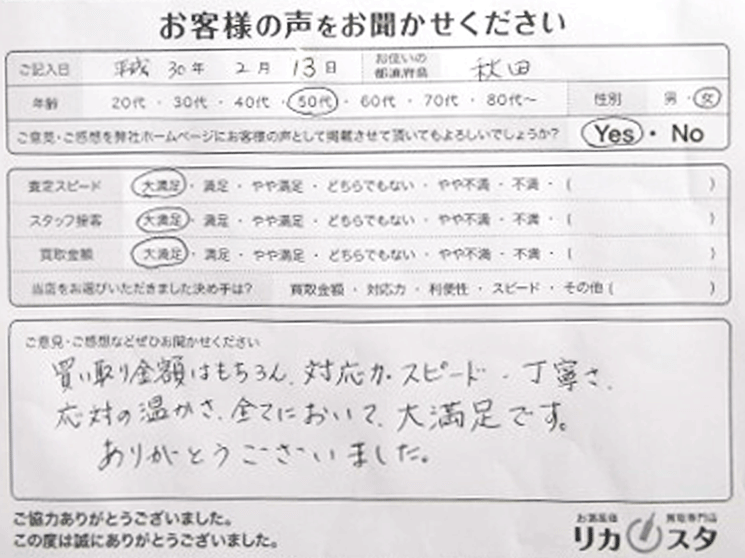 お客様の声をお聞かせください
ご記入日 平成 30年 2月 13日 お住いの都道府県 秋田
年齢 20代・30代・40代・50代・60代・70代・80代〜 性別 男・女
ご意見・ご感想を弊社ホームページにお客様の声として掲載させて頂いてもよろしいでしょうか? Yes・No
査定スピード 大満足・満足・やや満足・どちらでもない・やや不満・不満・( )
スタッフ接客 大満足・満足・やや満足・どちらでもない・やや不満・不満・( )
買取金額 大満足・満足・やや満足・どちらでもない・やや不満・不満・( )
当店をお選びいただきました決め手は? 買取金額・対応力・利便性・スピード・その他( )
ご意見・ご感想などぜひお聞かせください
買い取り金額はもちろん、対応力・スピード・丁寧さ、
応対の温かさ、全てにおいて、大満足です。
ありがとうございました。
ご協力ありがとうございました。
この度は誠にありがとうございました。
お酒高価 買取専門店
リカスタ